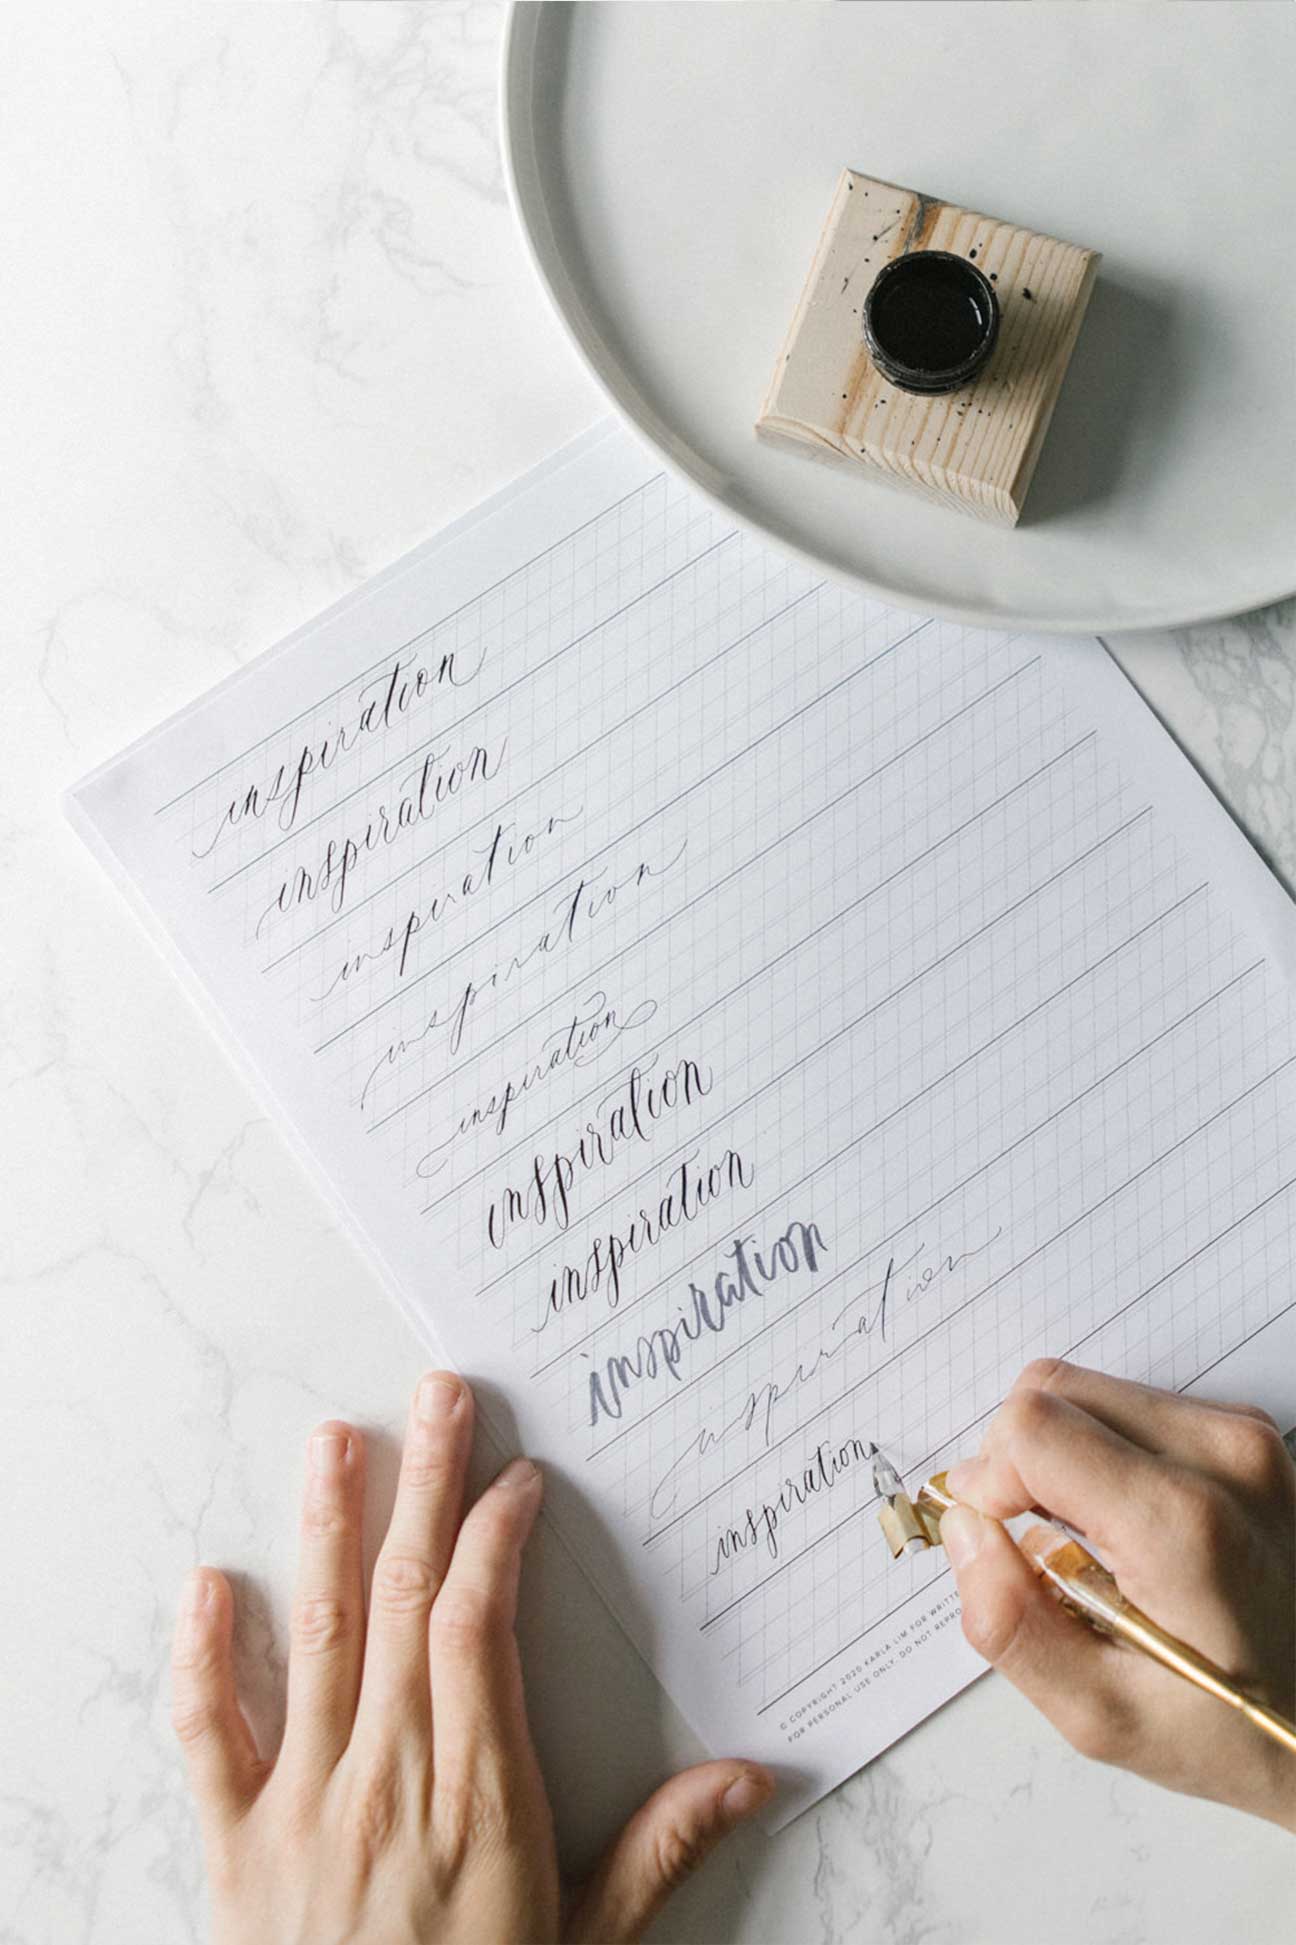 inspiration
inspiration
inspiration
inspiration
inspiration
inspiration
inspiration
inspiration
inspiration
inspiration
© COPYRIGHT 2020 KARLA LIM FOR
FOR PERSONAL USE ONLY. DO NOT